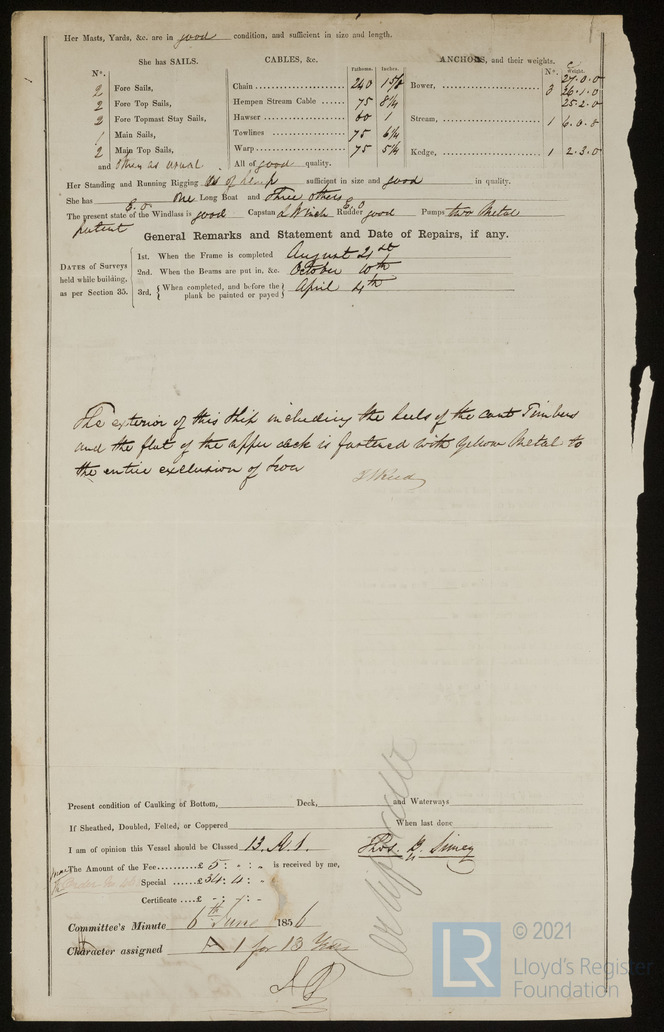 Her Masts, Yards, &c. are in good condition, and sufficient in size and length.
She has SAILS.
N°.
2 Fore Sails,
2 Fore Top Sails,
2 Fore Topmast Stay Sails,
1 Main Sails,
2 Main Top Sails,
and others as usual
CABLES, &c. Fathoms. Inches.
Chain 240 1 5/8
Hempen Stream Cable 75 8 1/4
Hawser 60 1
Towlines 75 6 1/4
Warp 75 5 1/4
All of good quality.
ANCHORS, and their weights. N°. Weight.
27.0.0
Bower, 3 26.1.0
25.2.0
Stream, 1 6.0.8
Kedge, 1 2.3.0
Her Standing and Running Rigging is of hemp sufficient in size and good in quality.
She has one Long Boat and Three others
The present state of the Windlass is good Capstan & Winch E.O Rudder good Pumps two Metal
patent
General Remarks and Statement and Date of Repairs, if any.
DATES of Surveys held while building, as per Section 35.
1st. When the Frame is completed August 21st
2nd. When the Beams are put in, &c. October 10th
3rd. { When completed, and before the plank be painted or payed } April 4th
The exterior of this Ship including the heels of the cant Timbers
and the flat of the upper deck is fastened with Yellow Metal to
the entire exclusion of Iron
Present condition of Caulking of Bottom, Deck, and Waterways
If Sheathed, Doubled, Felted, or Coppered When last done
I am of opinion this Vessel should be Classed 13. A. 1. Thos. G. Simey
The Amount of the Fee £ 5 : - : - is received by me,
Special £ 34 : 4 : -
Certificate £ - : - : -
Certificate
Committee's Minute 6th June 1856
Character assigned A 1 for 13 Years
LR
© 2021
Lloyd's Register
Foundation